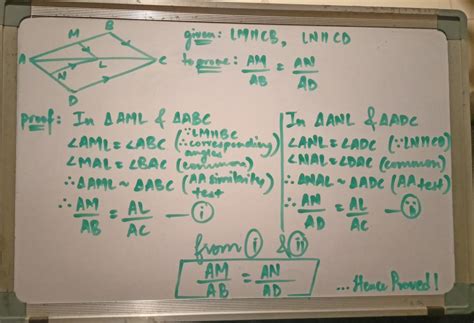 given: LM∥CB, LN∥CD
to prove: AM/AB = AN/AD
M B
A L C
N
D
proof: In △AML & △ABC
∠AML = ∠ABC (∵ LM∥BC ∴ corresponding angles)
∠MAL = ∠BAC (common)
∴ △AML ~ △ABC (AA similarity test)
∴ AM/AB = AL/AC — (i)
In △ANL & △ADC
∠ANL = ∠ADC (∵ LN∥CD)
∠NAL = ∠DAC (common)
∴ △NAL ~ △ADC (AA test)
∴ AN/AD = AL/AC — (ii)
from (i) & (ii)
AM/AB = AN/AD
...Hence Proved!